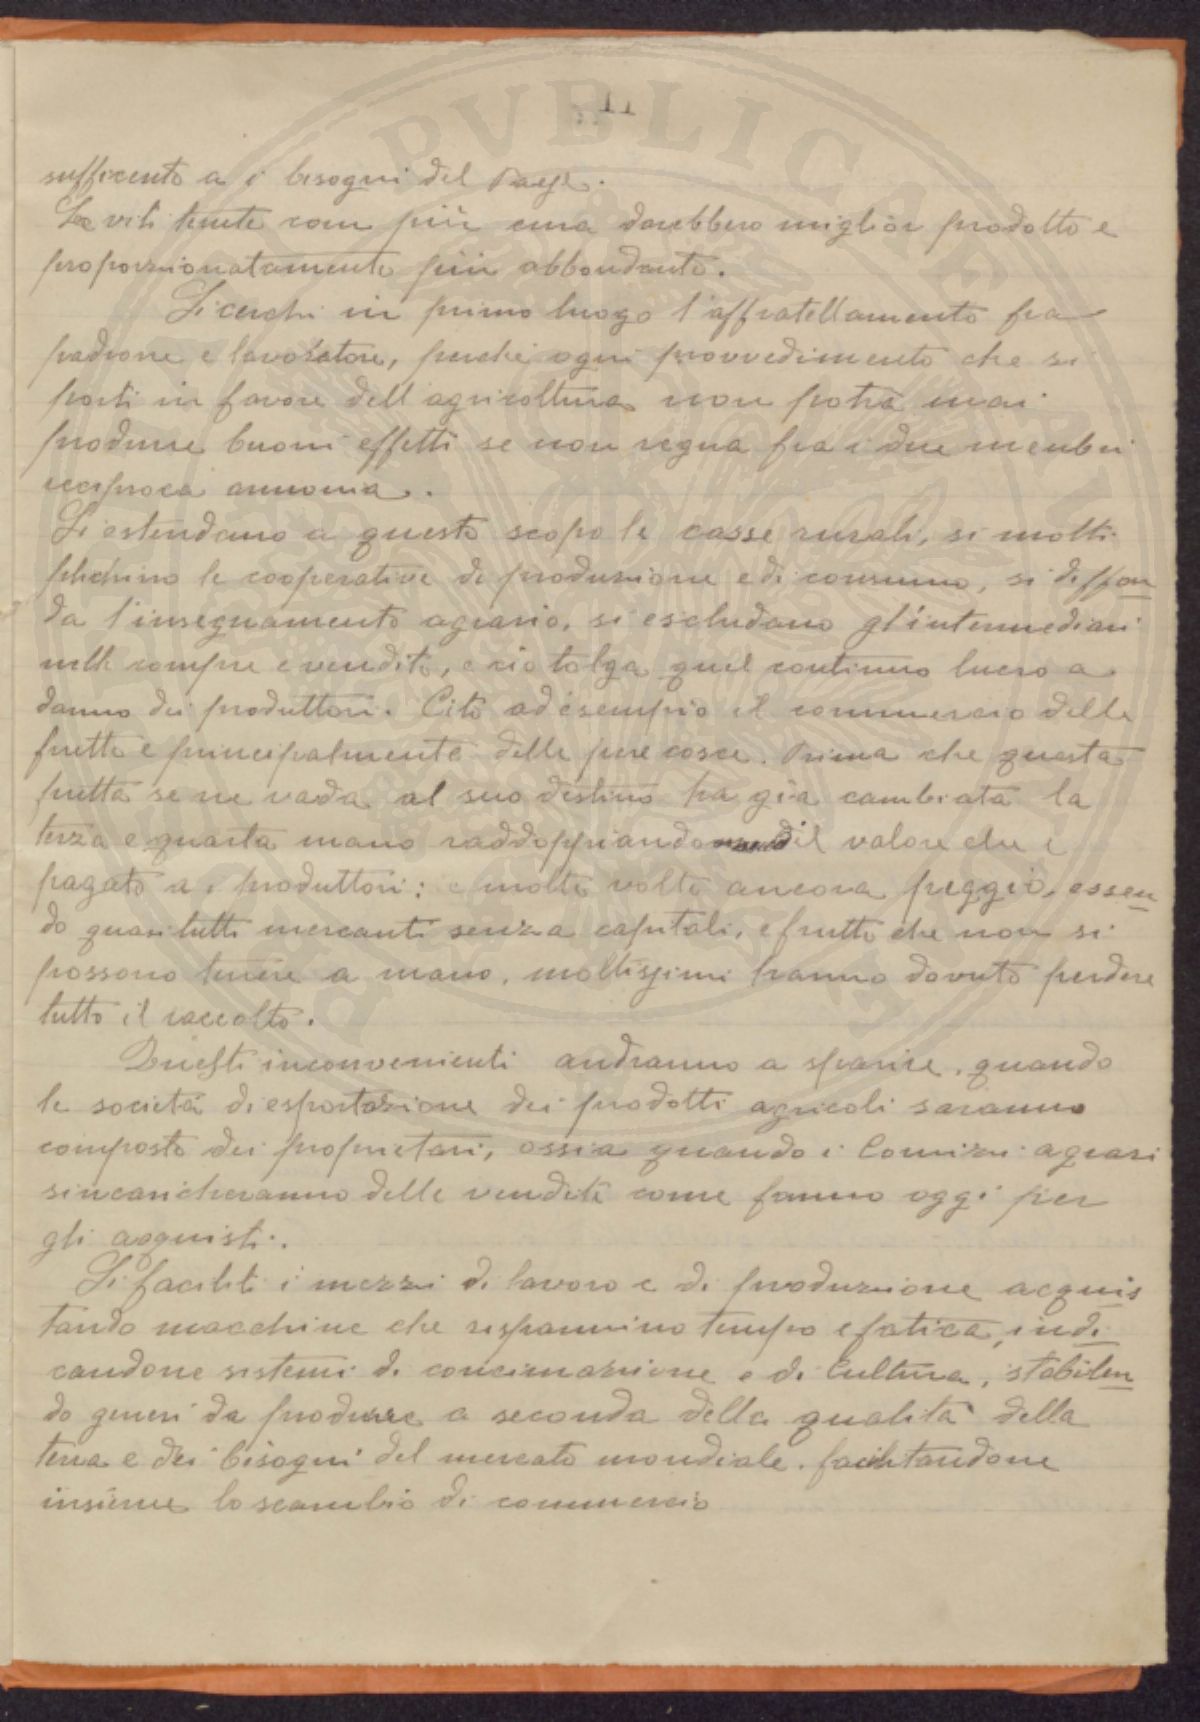 11
sufficento a i bisogni del Paese.
Le viti tenute con più cura darebbero miglior prodotto e
proporzionatamente più abbondante.
Si cerchi in primo luogo l'affratellamento fra
padrone e lavoratore, perché ogni provvedimento che si
porti in favore dell'agricoltura non potrà mai
produrre buoni effetti se non regna fra i due membri
reciproca armonia.
Si estendano a questo scopo le casse rurali, si molti
plichino le cooperative di produzione e di consumo, si diffon
da l'insegnamento agrario, si escludano gl'intermediari
nelle compre e vendite, e cio tolga quel continuo lucro a
danno dei produttori. Cito ad esempio il commercio delle
frutte e principalmente delle pere cosce. Prima che questa
frutta se ne vada al suo destino ha già cambiata la
terza e quarta mano raddoppiando il valore che è
pagato a i produttori: e molte volte ancora peggio, essen
do quasi tutti mercanti senza capitali, e frutte che non si
possono tenere a mano, moltissimi hanno dovuto perdere
tutto il raccolto.
Questi inconvenienti andranno a sparire, quando
le società di esportazione dei prodotti agricoli saranno
composte dei proprietari, ossia quando i Comizi agrari
s'incaricheranno delle vendite come fanno oggi per
gli acquisti.
Si faciliti i mezzi di lavoro e di produzione acquis
tando macchine che risparmino tempo e fatica, indi
candone sistemi di concimazione e di cultura, stabilen
do generi da produrre a seconda della qualità della
terra e dei bisogni del mercato mondiale, facilitandone
insieme lo scambio di commercio